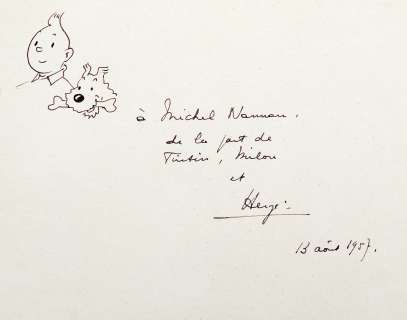 à Michel Nannan.
de la part de
Tintin, Milou
et
Hergé
13 août 1957.